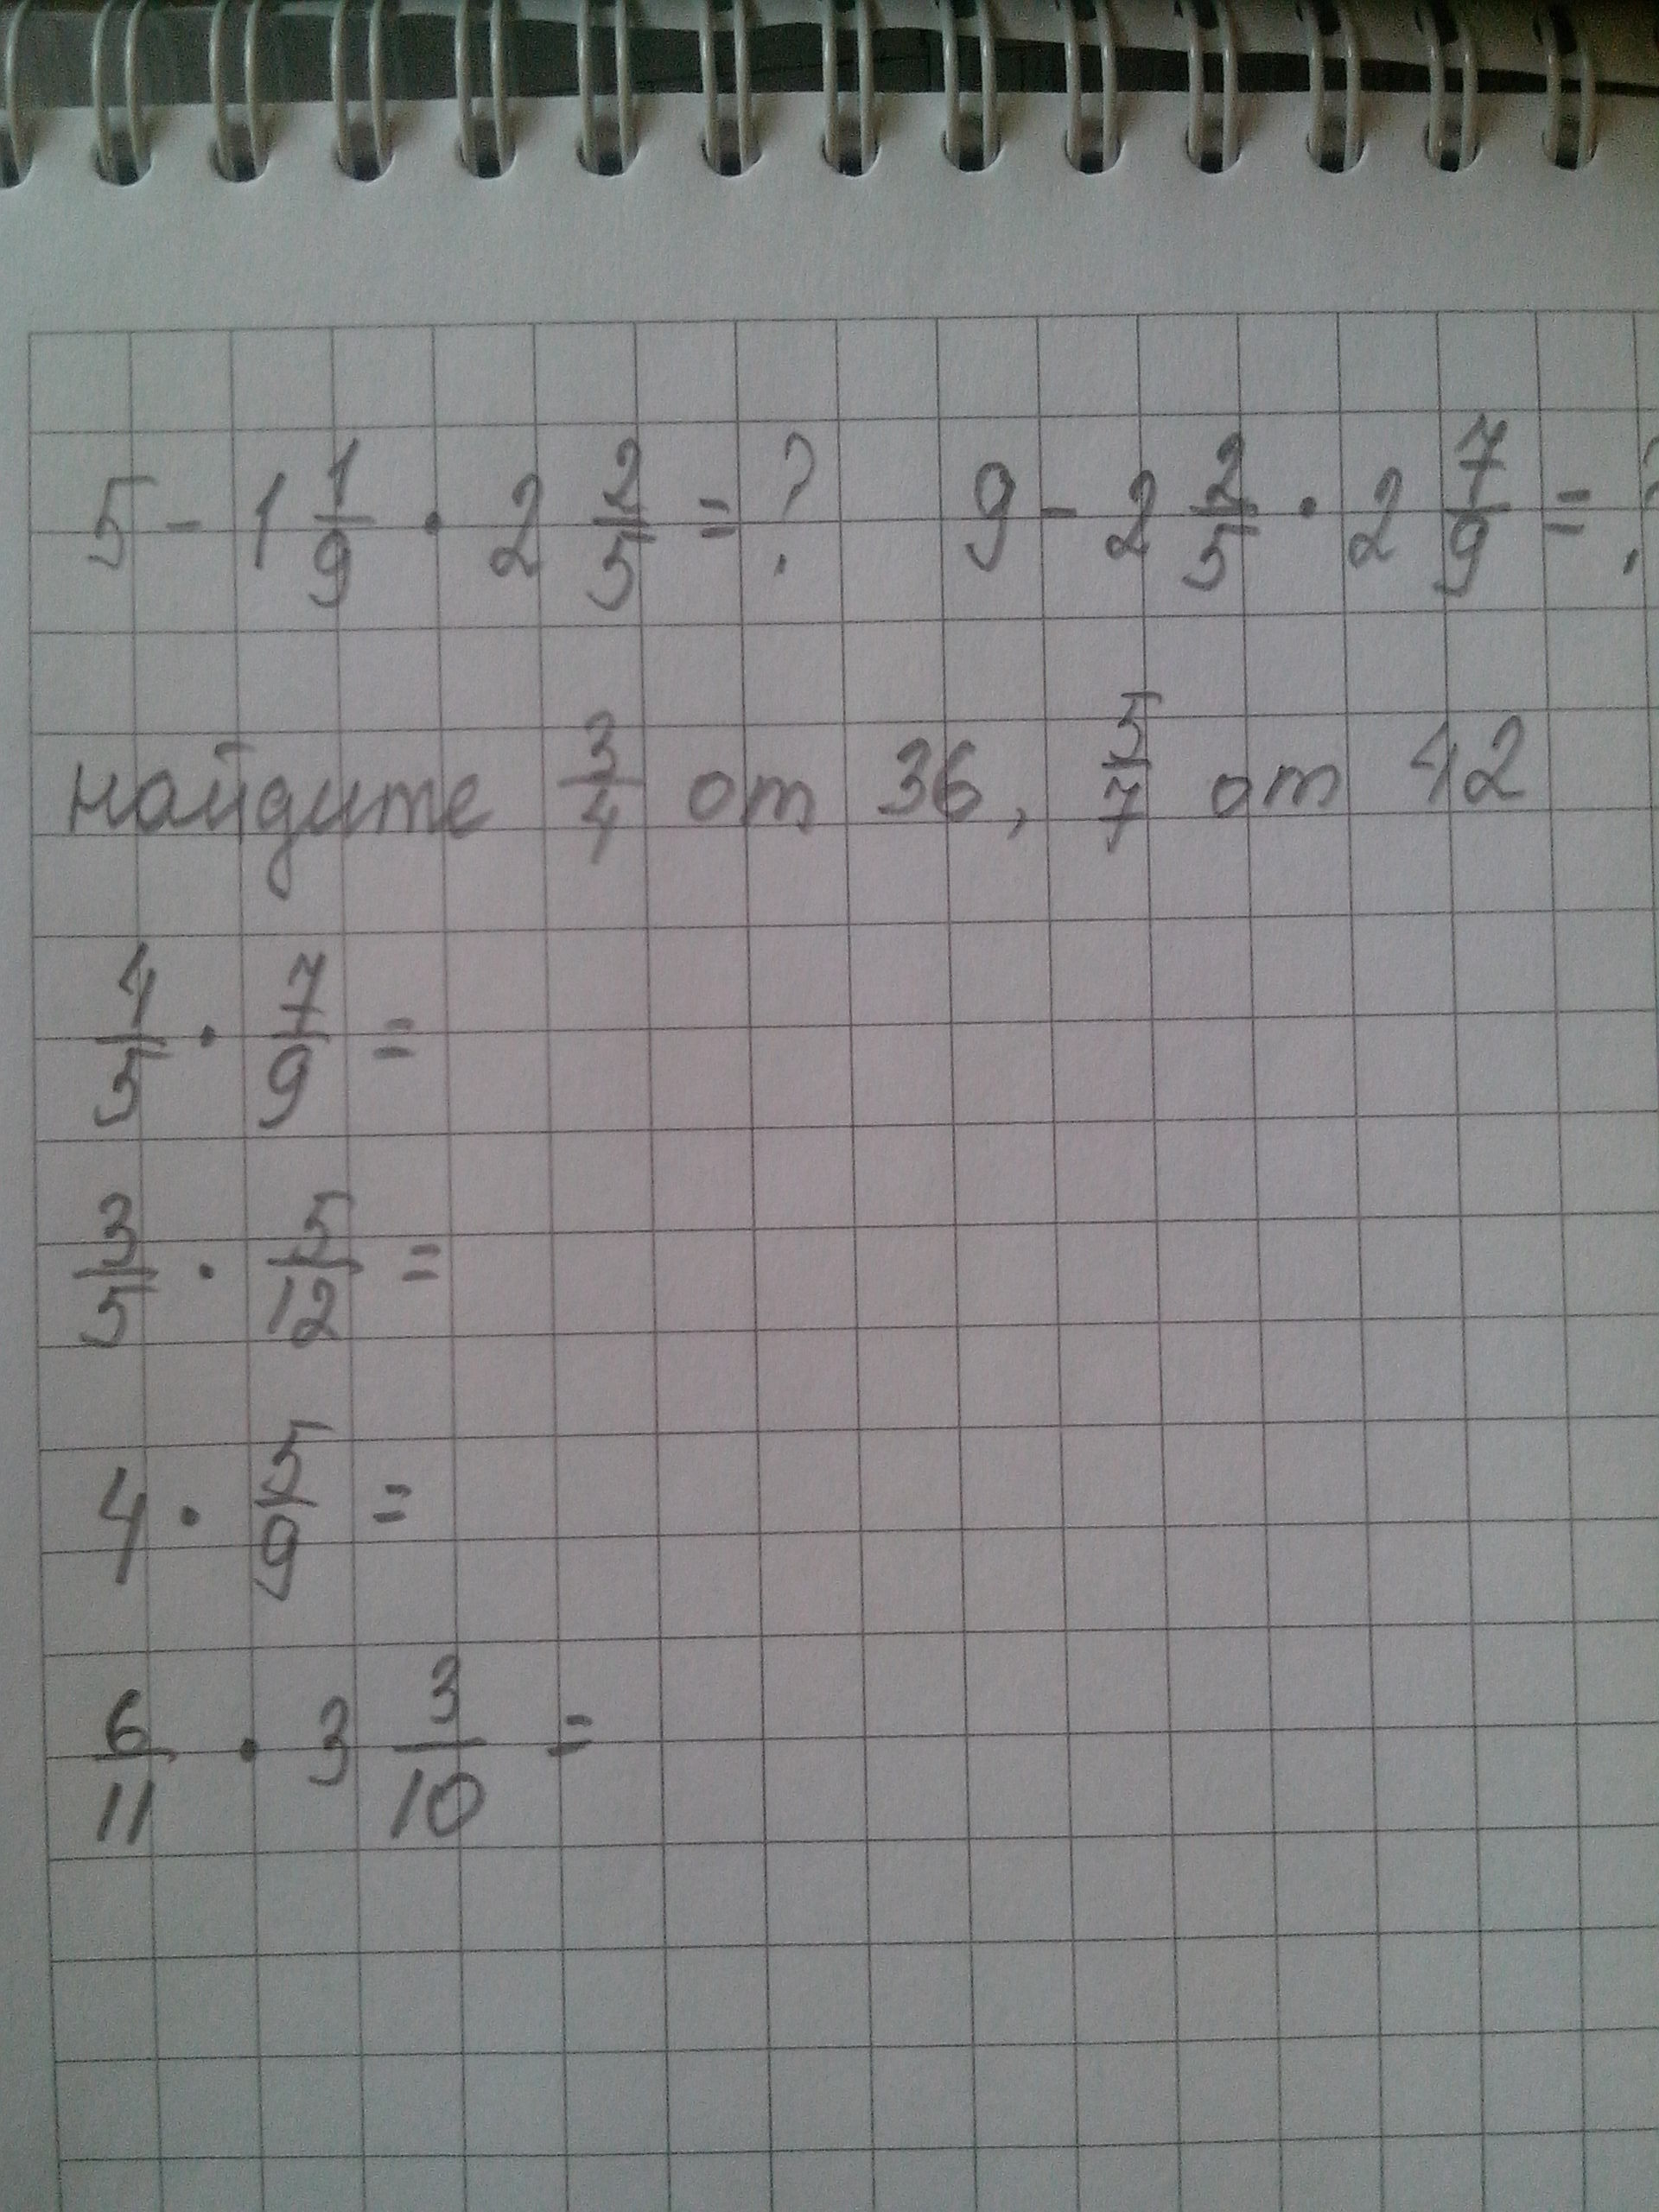 5 - 1 1/9 · 2 2/5 = ? 9 - 2 2/5 · 2 7/9 = ?
найдите 3/4 от 36, 5/7 от 42
4/5 · 7/9 =
3/5 · 5/12 =
4 · 5/9 =
6/11 · 3 3/10 =